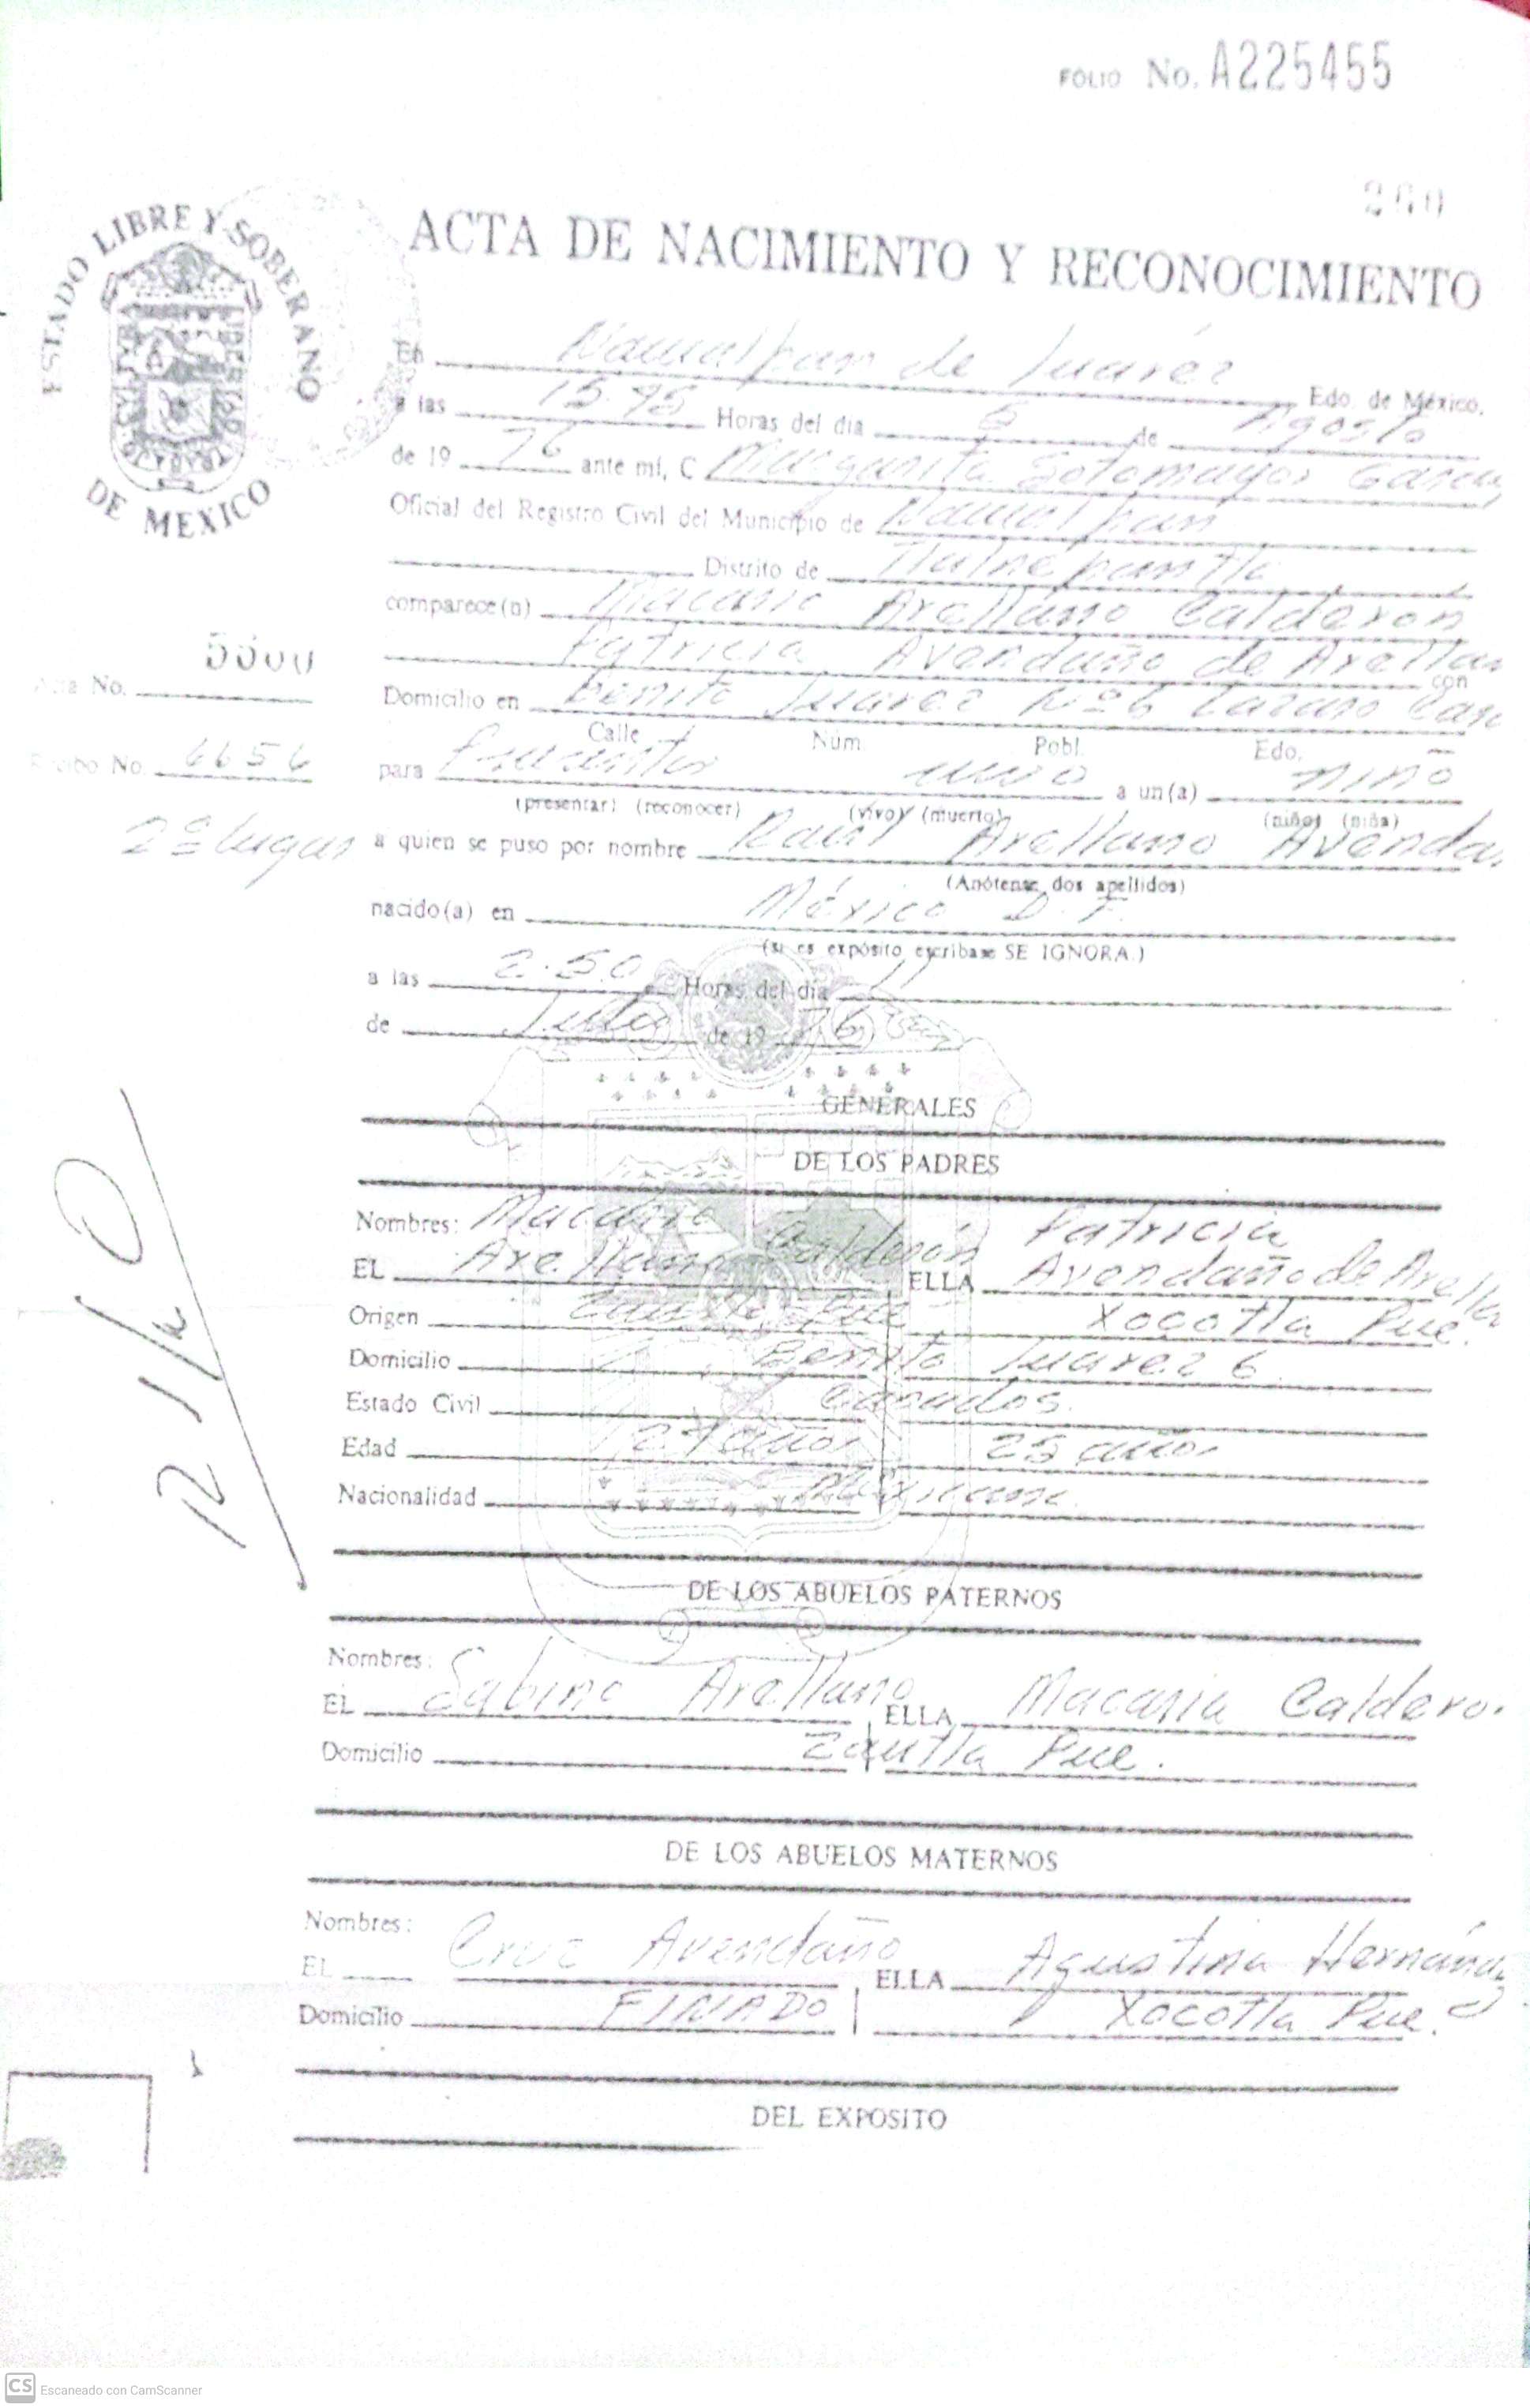 FOLIO No. A225455
ESTADO LIBRE Y SOBERANO
DE MEXICO
ACTA DE NACIMIENTO Y RECONOCIMIENTO
En Naucalpan de Juárez Edo. de México,
a las Horas del día de Agosto
de 19 76 ante mí, C Margarita Sotomayor Garcia
Oficial del Registro Civil del Municipio de Naucalpan
Distrito de Tlalnepantla
comparece(n) Macario Arellano Calderon
Patricia Avendaño de Arellan
con
Acta No.
Domicilio en Benito Juarez Nº 6 Lazaro Car
Calle Núm. Pobl. Edo.
Recibo No. 6656 para Presentar vivo a un(a) niño
(presentar) (reconocer) (vivo) (muerto) (niño) (niña)
2º lugar a quien se puso por nombre Raúl Arellano Avenda
(Anótense dos apellidos)
nacido(a) en México D. F.
(si es expósito escríbase SE IGNORA.)
a las 2.50 Horas del día 11
de Julio de 19 76
GENERALES
DE LOS PADRES
Nombres: Macario Patricia
EL Arellano Calderón ELLA Avendaño de Arella
Origen Zautla Pue Xocotla Pue.
Domicilio Benito Juarez 6
Estado Civil Casados.
Edad 27 años 25 años
Nacionalidad Mexicana.
DE LOS ABUELOS PATERNOS
Nombres:
EL Sabino Arellano ELLA Macaria Caldero
Domicilio Zautla Pue.
DE LOS ABUELOS MATERNOS
Nombres:
EL Cruz Avendaño ELLA Agustina Hernánd
Domicilio FINADO Xocotla Pue.
DEL EXPOSITO
CS Escaneado con CamScanner